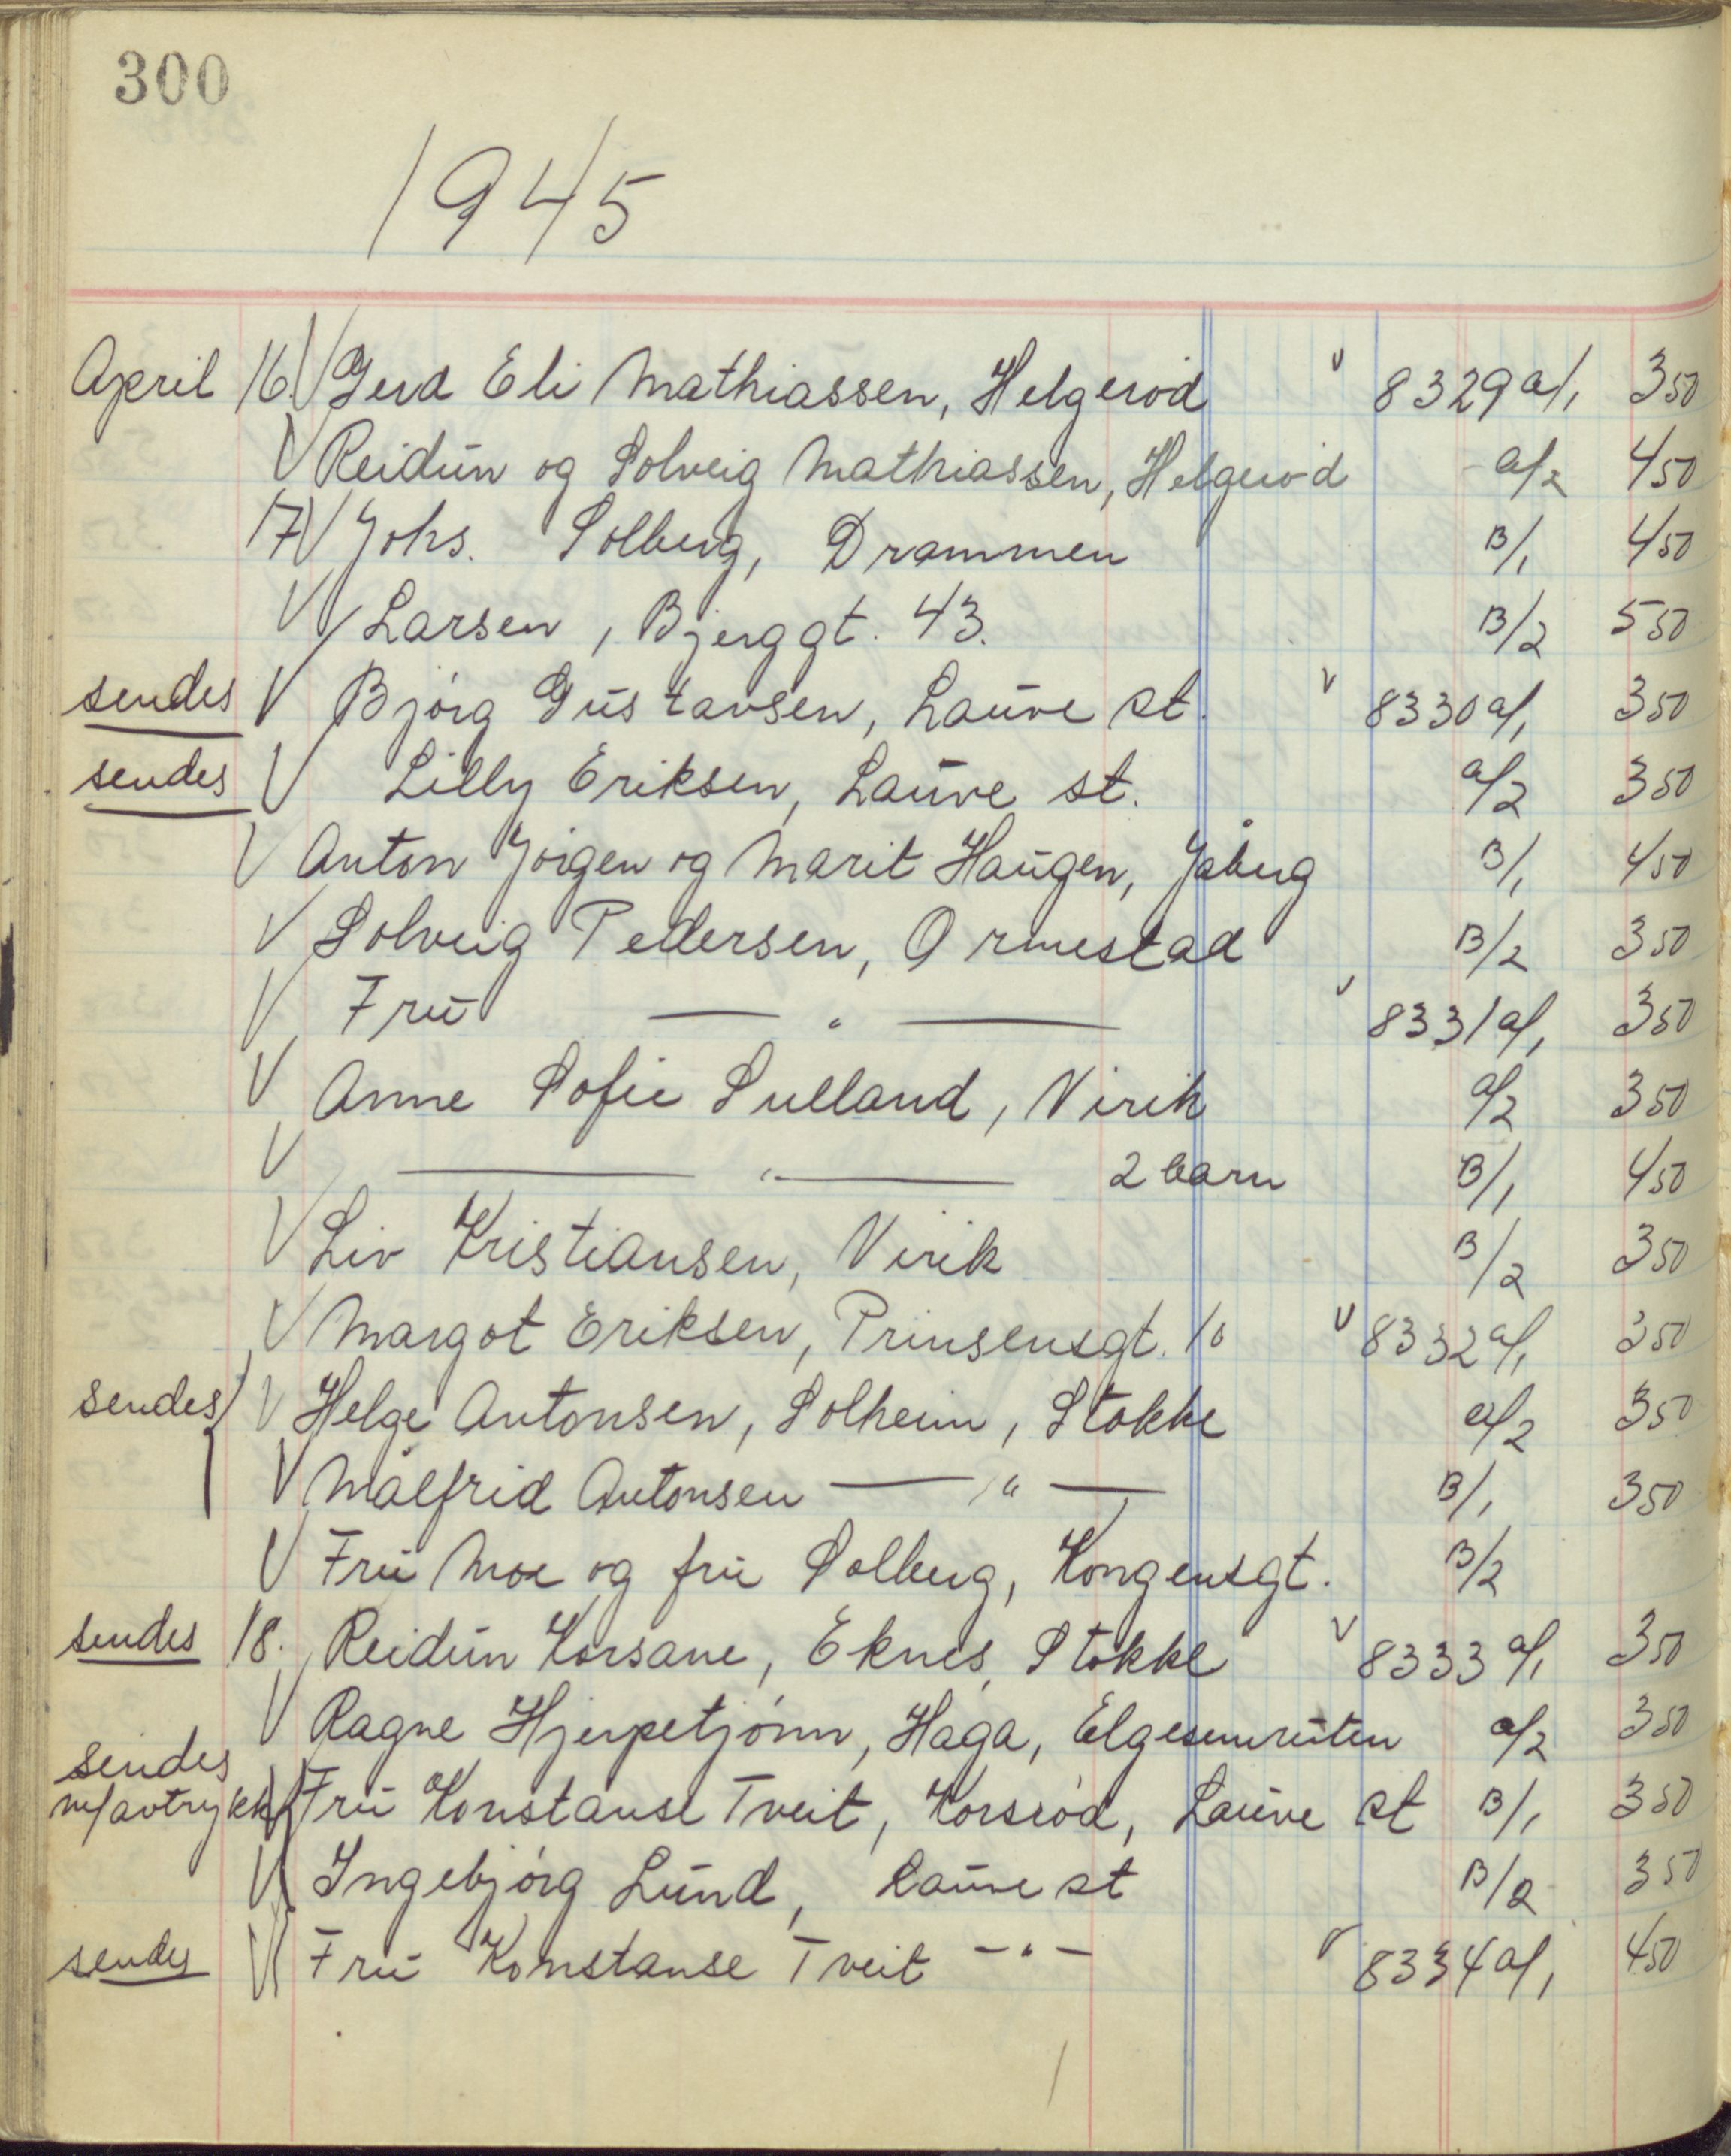 300
1945
April 16. V Gerd Eli Mathiassen, Helgerød V 8329 a/1 3 50
V Reidun og Solveig Mathiassen, Helgerød a/2 4 50
17 V Johs. Solberg, Drammen B/1 4 50
V Larsen, Bjerggt. 43. B/2 5 50
sendes V Bjørg Gustavsen, Lauve st. V 8330 a/1 3 50
sendes V Lilly Eriksen, Lauve st. a/2 3 50
V Anton Jørgen og Marit Haugen, Jåberg B/1 4 50
V Solveig Pedersen, Ormestad B/2 3 50
V Fru — " — V 8331 a/1 3 50
V Anne Sofie Sulland, Virik a/2 3 50
V — " — 2 barn B/1 4 50
V Liv Kristiansen, Virik B/2 3 50
V Margot Eriksen, Prinsensgt. 10 V 8332 a/1 3 50
sendes V Helge Antonsen, Solheim, Stokke a/2 3 50
V Målfrid Antonsen — " — B/1 3 50
V Fru Moe og fru Solberg, Kongensgt. B/2
sendes 18. Reidun Korsane, Eknes, Stokke V 8333 a/1 3 50
V Ragne Hjerpetjønn, Haga, Elgesemruten a/2 3 50
sendes
m/avtrykk V Fru Konstanse Tveit, Korsrød, Lauve st B/1 3 50
V Ingebjørg Lund, Lauve st B/2 3 50
sendes V Fru Konstanse Tveit — " — V 8334 a/1 4 50